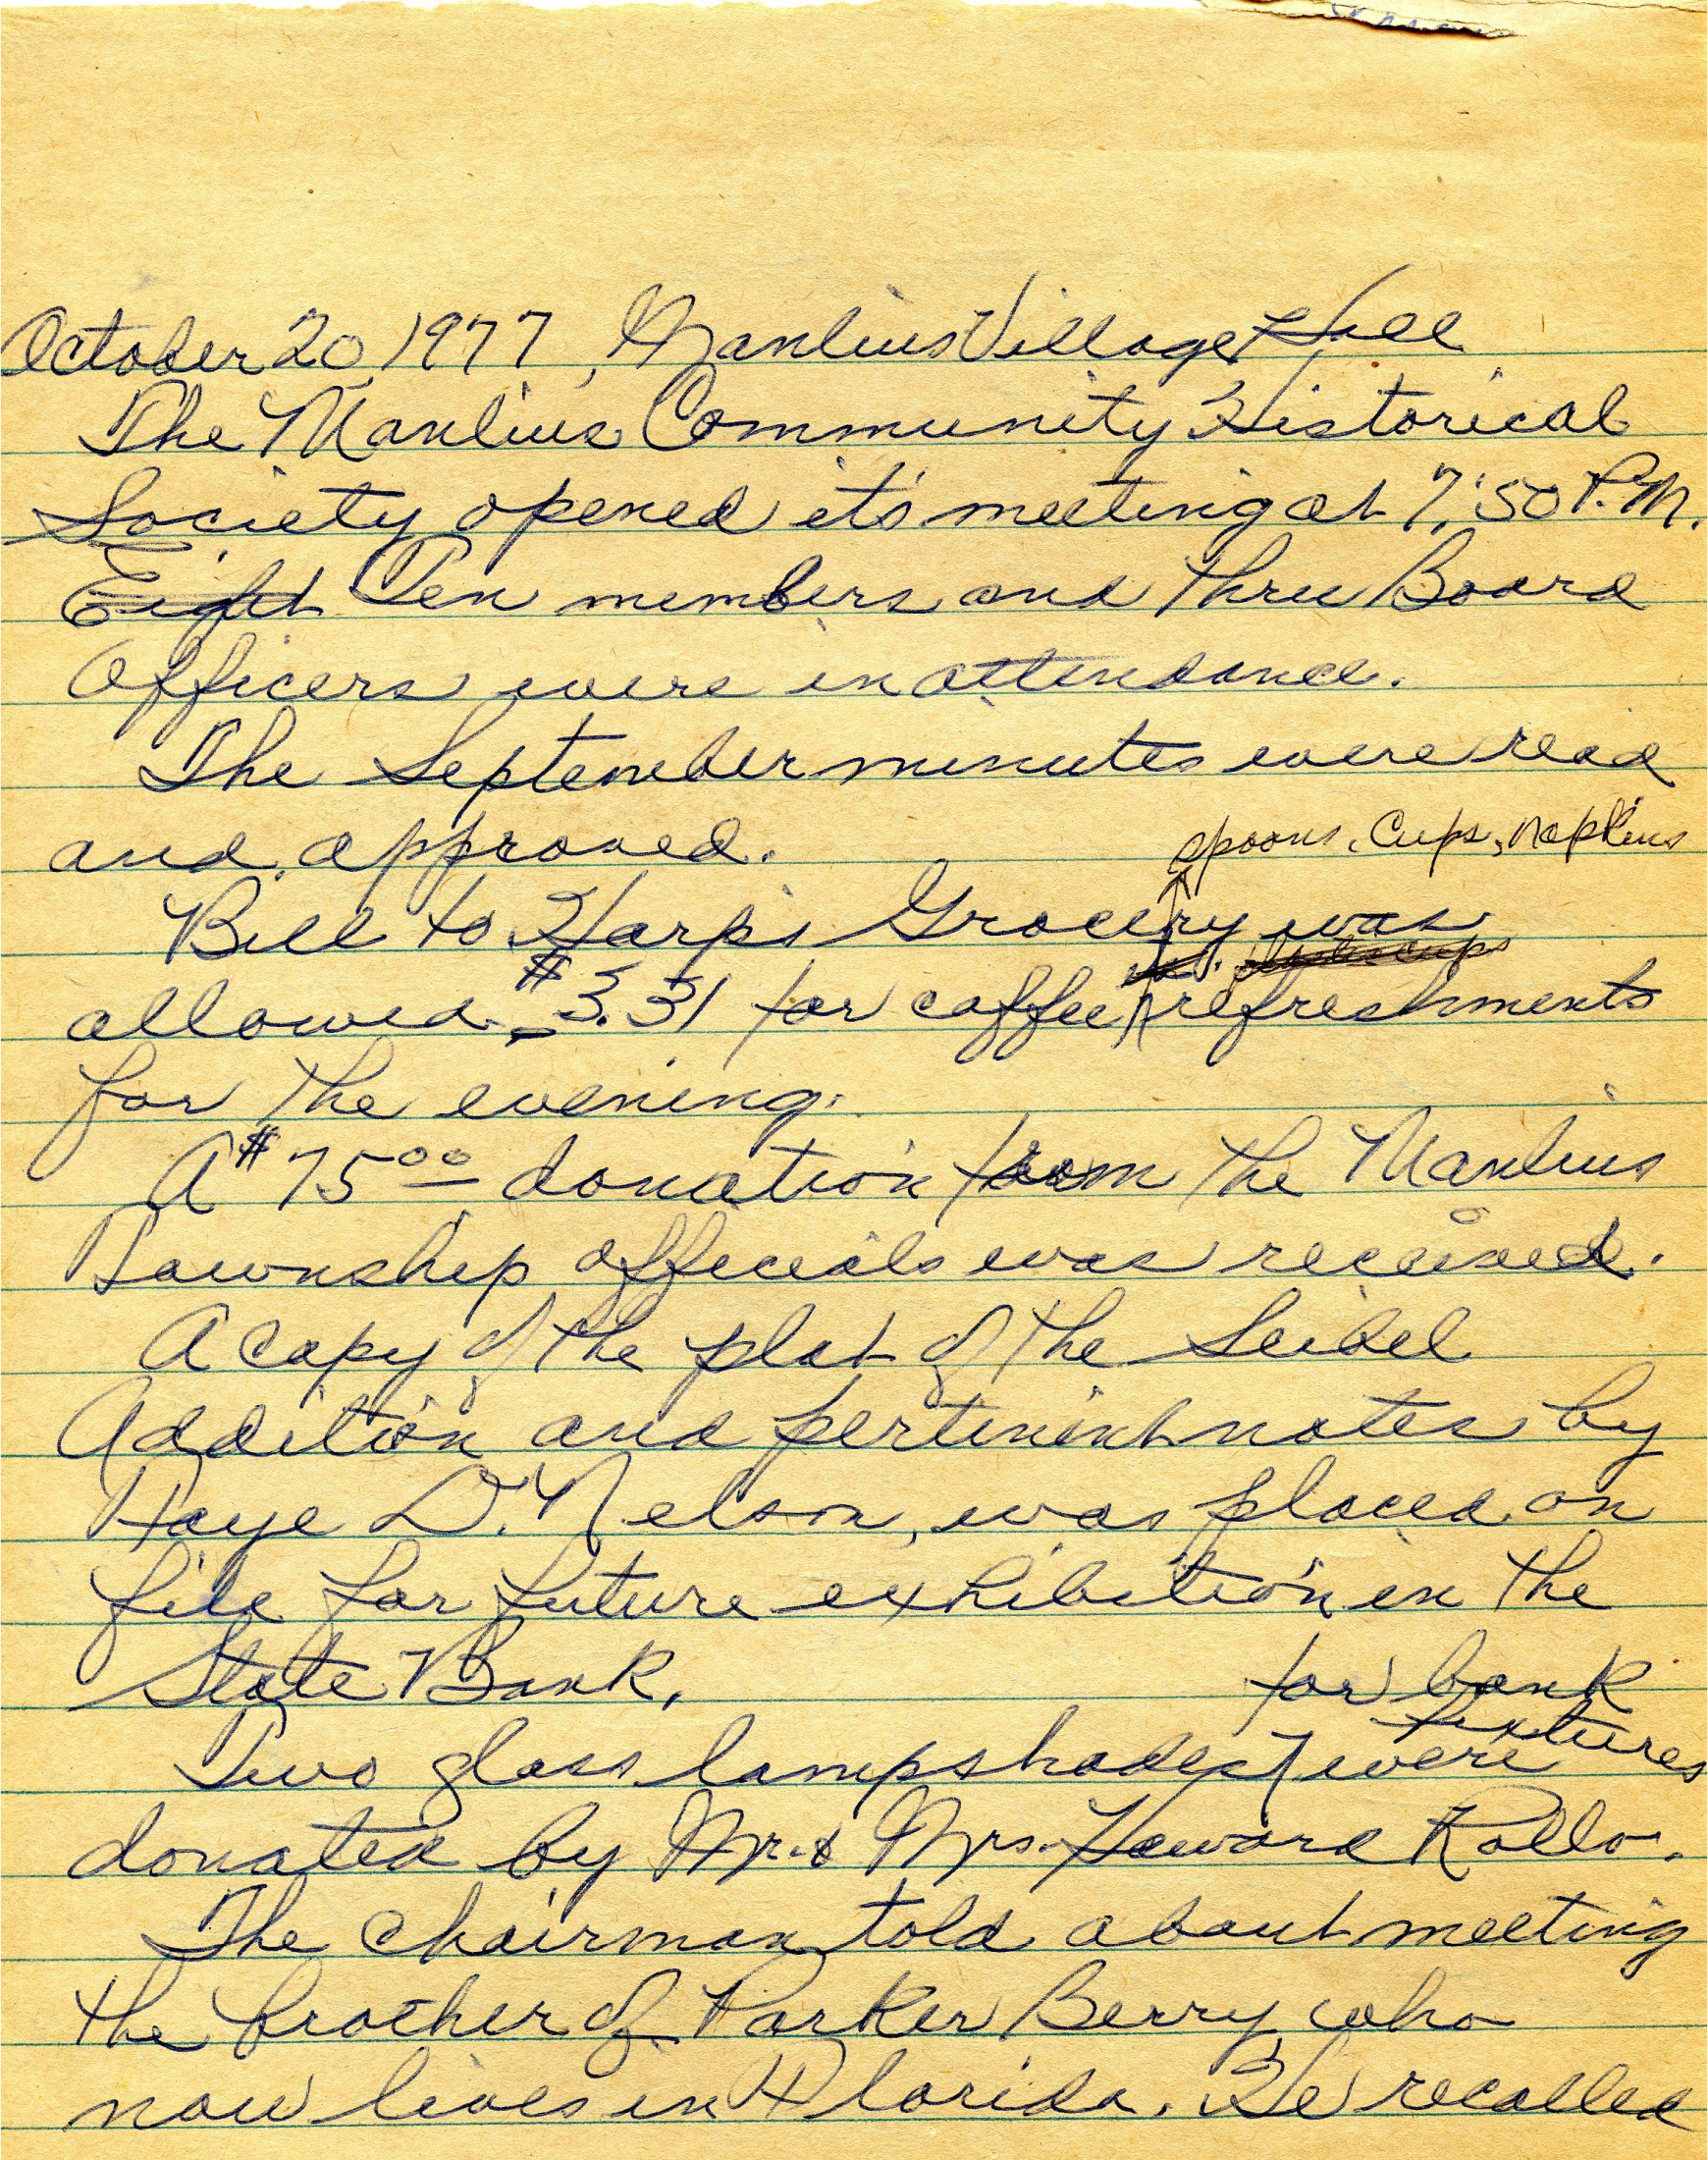 October 20, 1977, Manlius Village Hall
The Manlius Community Historical
Society opened it's meeting at 7:50 P.M.
Eight Ten members and three Board
Officers were in attendance.
The September minutes were read
and approved.
spoons, Cups, napkins
Bill to Harp's Grocery was
plastic cups
allowed, $3.31 for coffee refreshments
for the evening.
A $75.00 donation from the Manlius
Township officials was received.
A copy of the plat of the Seibel
Addition and pertinent notes by
Haye D. Nelson, was placed on
file for future exhibition in the
State Bank.
for bank
fixtures
Two glass lampshades were
donated by Mr. & Mrs. Howard Rollo.
The chairman told about meeting
the brother of Parker Berry who
now lives in Florida. He recalled